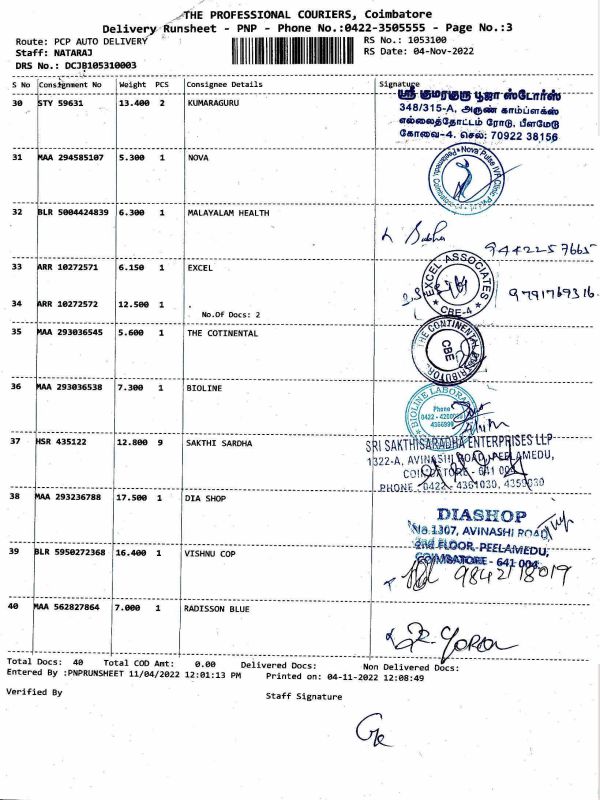 THE PROFESSIONAL COURIERS, Coimbatore
Delivery Runsheet - PNP - Phone No.:0422-3505555 - Page No.:3
Route: PCP AUTO DELIVERY
RS No.: 1053100
Staff: NATARAJ
RS Date: 04-Nov-2022
DRS No.: DCJB105310003
S No Consignment No Weight PCS Consignee Details Signature
30 STY 59631 13.400 2 KUMARAGURU
ஸ்ரீ குமரகுரு பூஜா ஸ்டோர்ஸ்
348/315-A, அருண் காம்ப்ளக்ஸ்
எல்லைத்தோட்டம் ரோடு, பீளமேடு
கோவை-4. செல்: 70922 38156
31 MAA 294585107 5.300 1 NOVA
Nova Pulse IVF Clinic Pvt. Ltd.
32 BLR 5004424839 6.300 1 MALAYALAM HEALTH
9442257665
33 ARR 10272571 6.150 1 EXCEL
EXCEL ASSOCIATES
CBE-4
9791769316
34 ARR 10272572 12.500 1 .
No.Of Docs: 2
35 MAA 293036545 5.600 1 THE COTINENTAL
THE CONTINENTAL DISTRIBUTOR
CBE
36 MAA 293036538 7.300 1 BIOLINE
BIOLINE LABORA
Phone
37 HSR 435122 12.800 9 SAKTHI SARDHA
SRI SAKTHISARADHA ENTERPRISES LLP
1322-A, AVINASHI ROAD, PEELAMEDU,
COIMBATORE - 641 004
PHONE : 0422 - 4361030, 4359030
38 MAA 293236788 17.500 1 DIA SHOP
DIASHOP
No.1307, AVINASHI ROAD,
2nd FLOOR, PEELAMEDU,
COIMBATORE - 641 004
39 BLR 5950272368 16.400 1 VISHNU COP
9842718019
40 MAA 562827864 7.000 1 RADISSON BLUE
Total Docs: 40 Total COD Amt: 0.00 Delivered Docs: Non Delivered Docs:
Entered By :PNPRUNSHEET 11/04/2022 12:01:13 PM Printed on: 04-11-2022 12:08:49
Verified By
Staff Signature